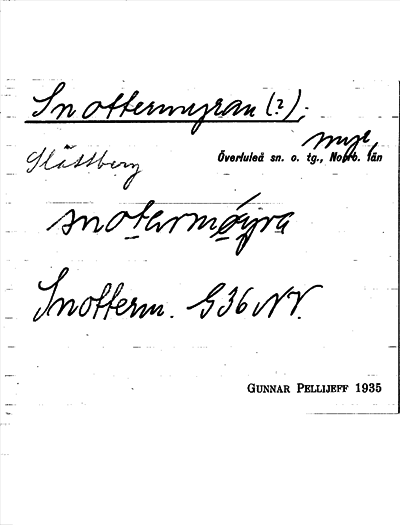 Snottermyran (?),
myr,
Slåttberg
Överluleå sn. o. tg., Norrb. län
snotarmøyra
Snotterm. G36 NV.
GUNNAR PELLIJEFF 1935